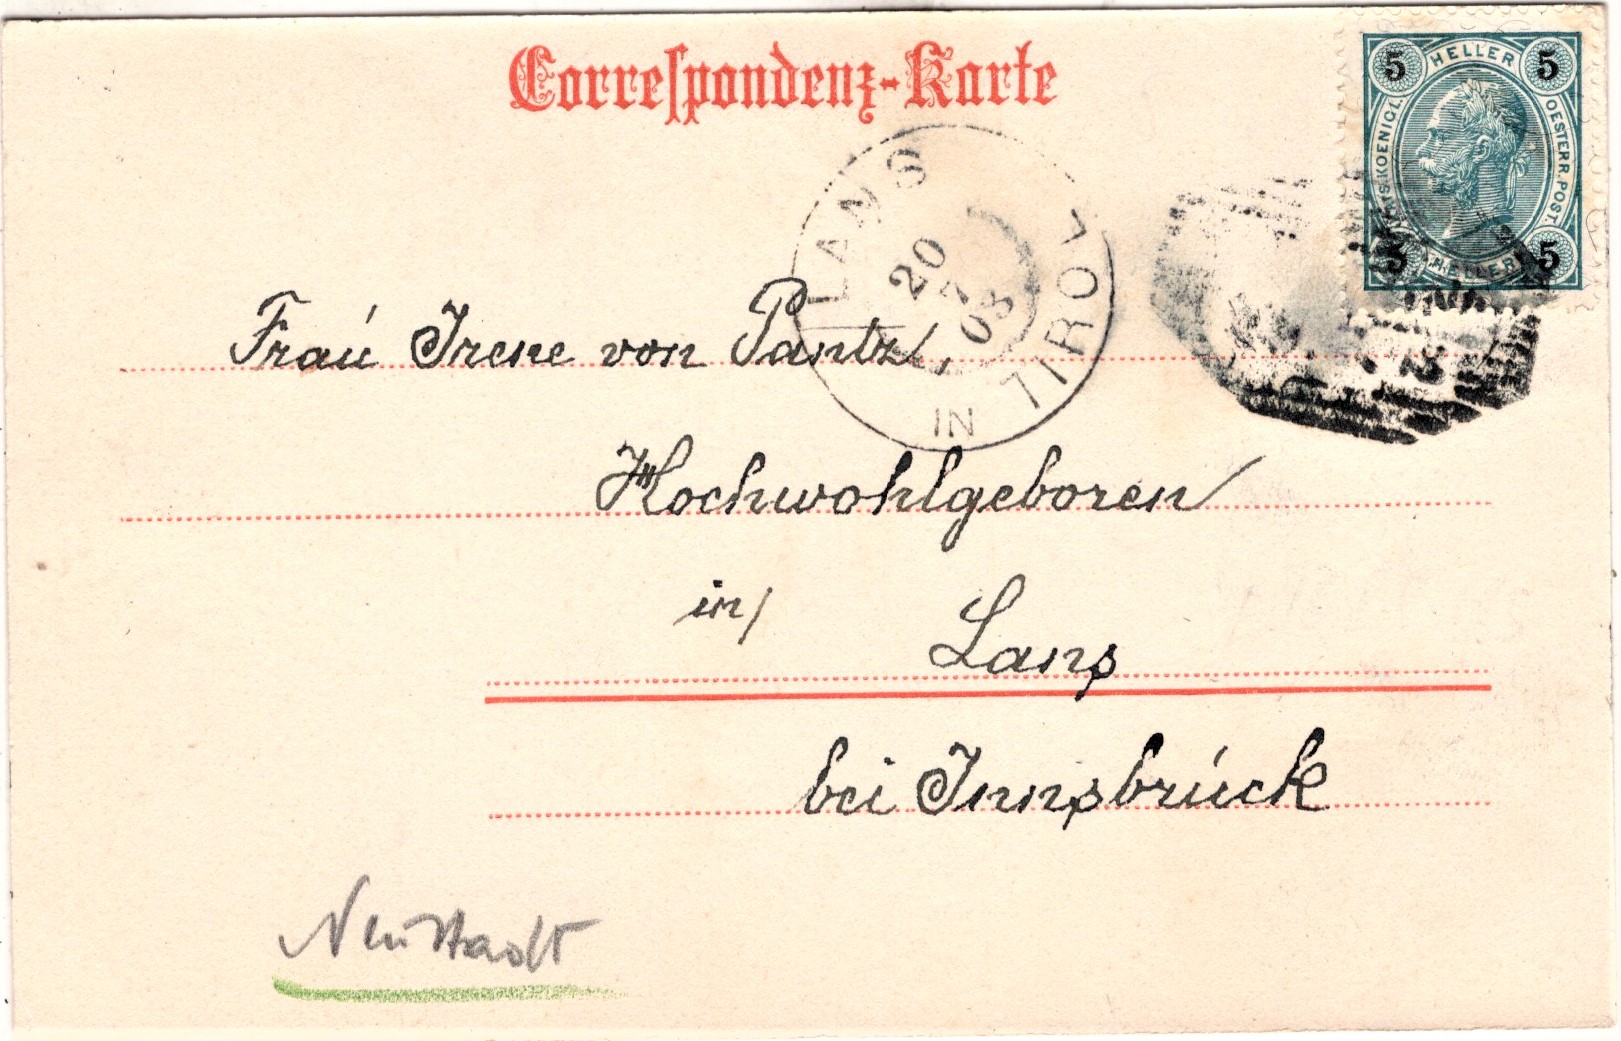 Correspondenz-Karte
5 HELLER 5
KAIS. KOENIGL. OESTERR. POST.
5 HELLER 5
LANS IN TIROL
20
7
03
Fraú Irene von Pantz,
Hochwohlgeboren
in/ Lans
bei Innsbrúck
Neustadt